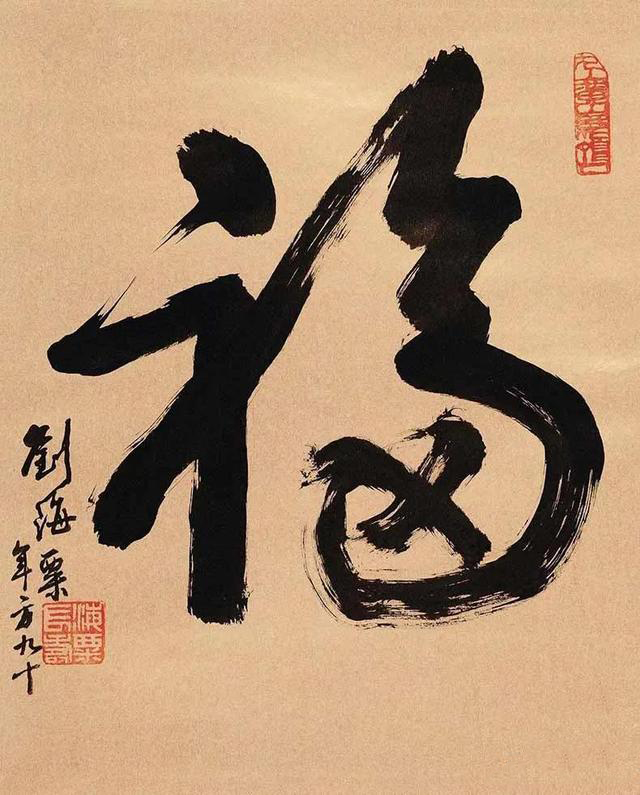 福
劉海粟
年方九十
海粟